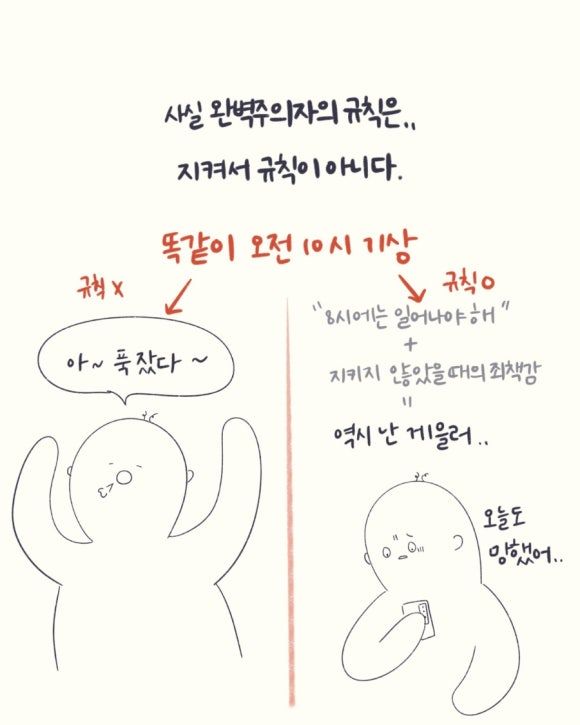 사실 완벽주의자의 규칙은,,
지켜서 규칙이 아니다.
똑같이 오전 10시 기상
규칙 X
아~ 푹 잤다 ~
규칙 O
"8시에는 일어나야 해"
+
지키지 않았을 때의 죄책감
=
역시 난 게을러..
오늘도
망했어..